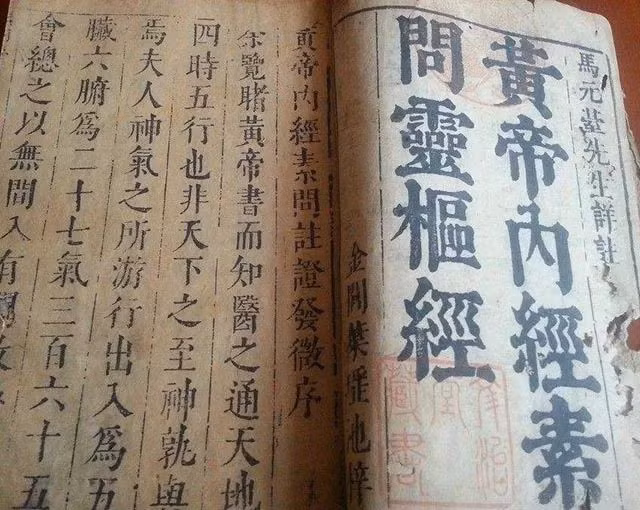 馬元臺先生詳註
黃帝內經素
問靈樞經
金閶葉瑤池梓
黃帝內經素問註證發微序
余覽睹黃帝書而知醫之通天地
四時五行也非天下之至神孰與
焉夫人神氣之所游行出入為五
臟六腑為二十七氣三百六十五
會總之以無間入有間